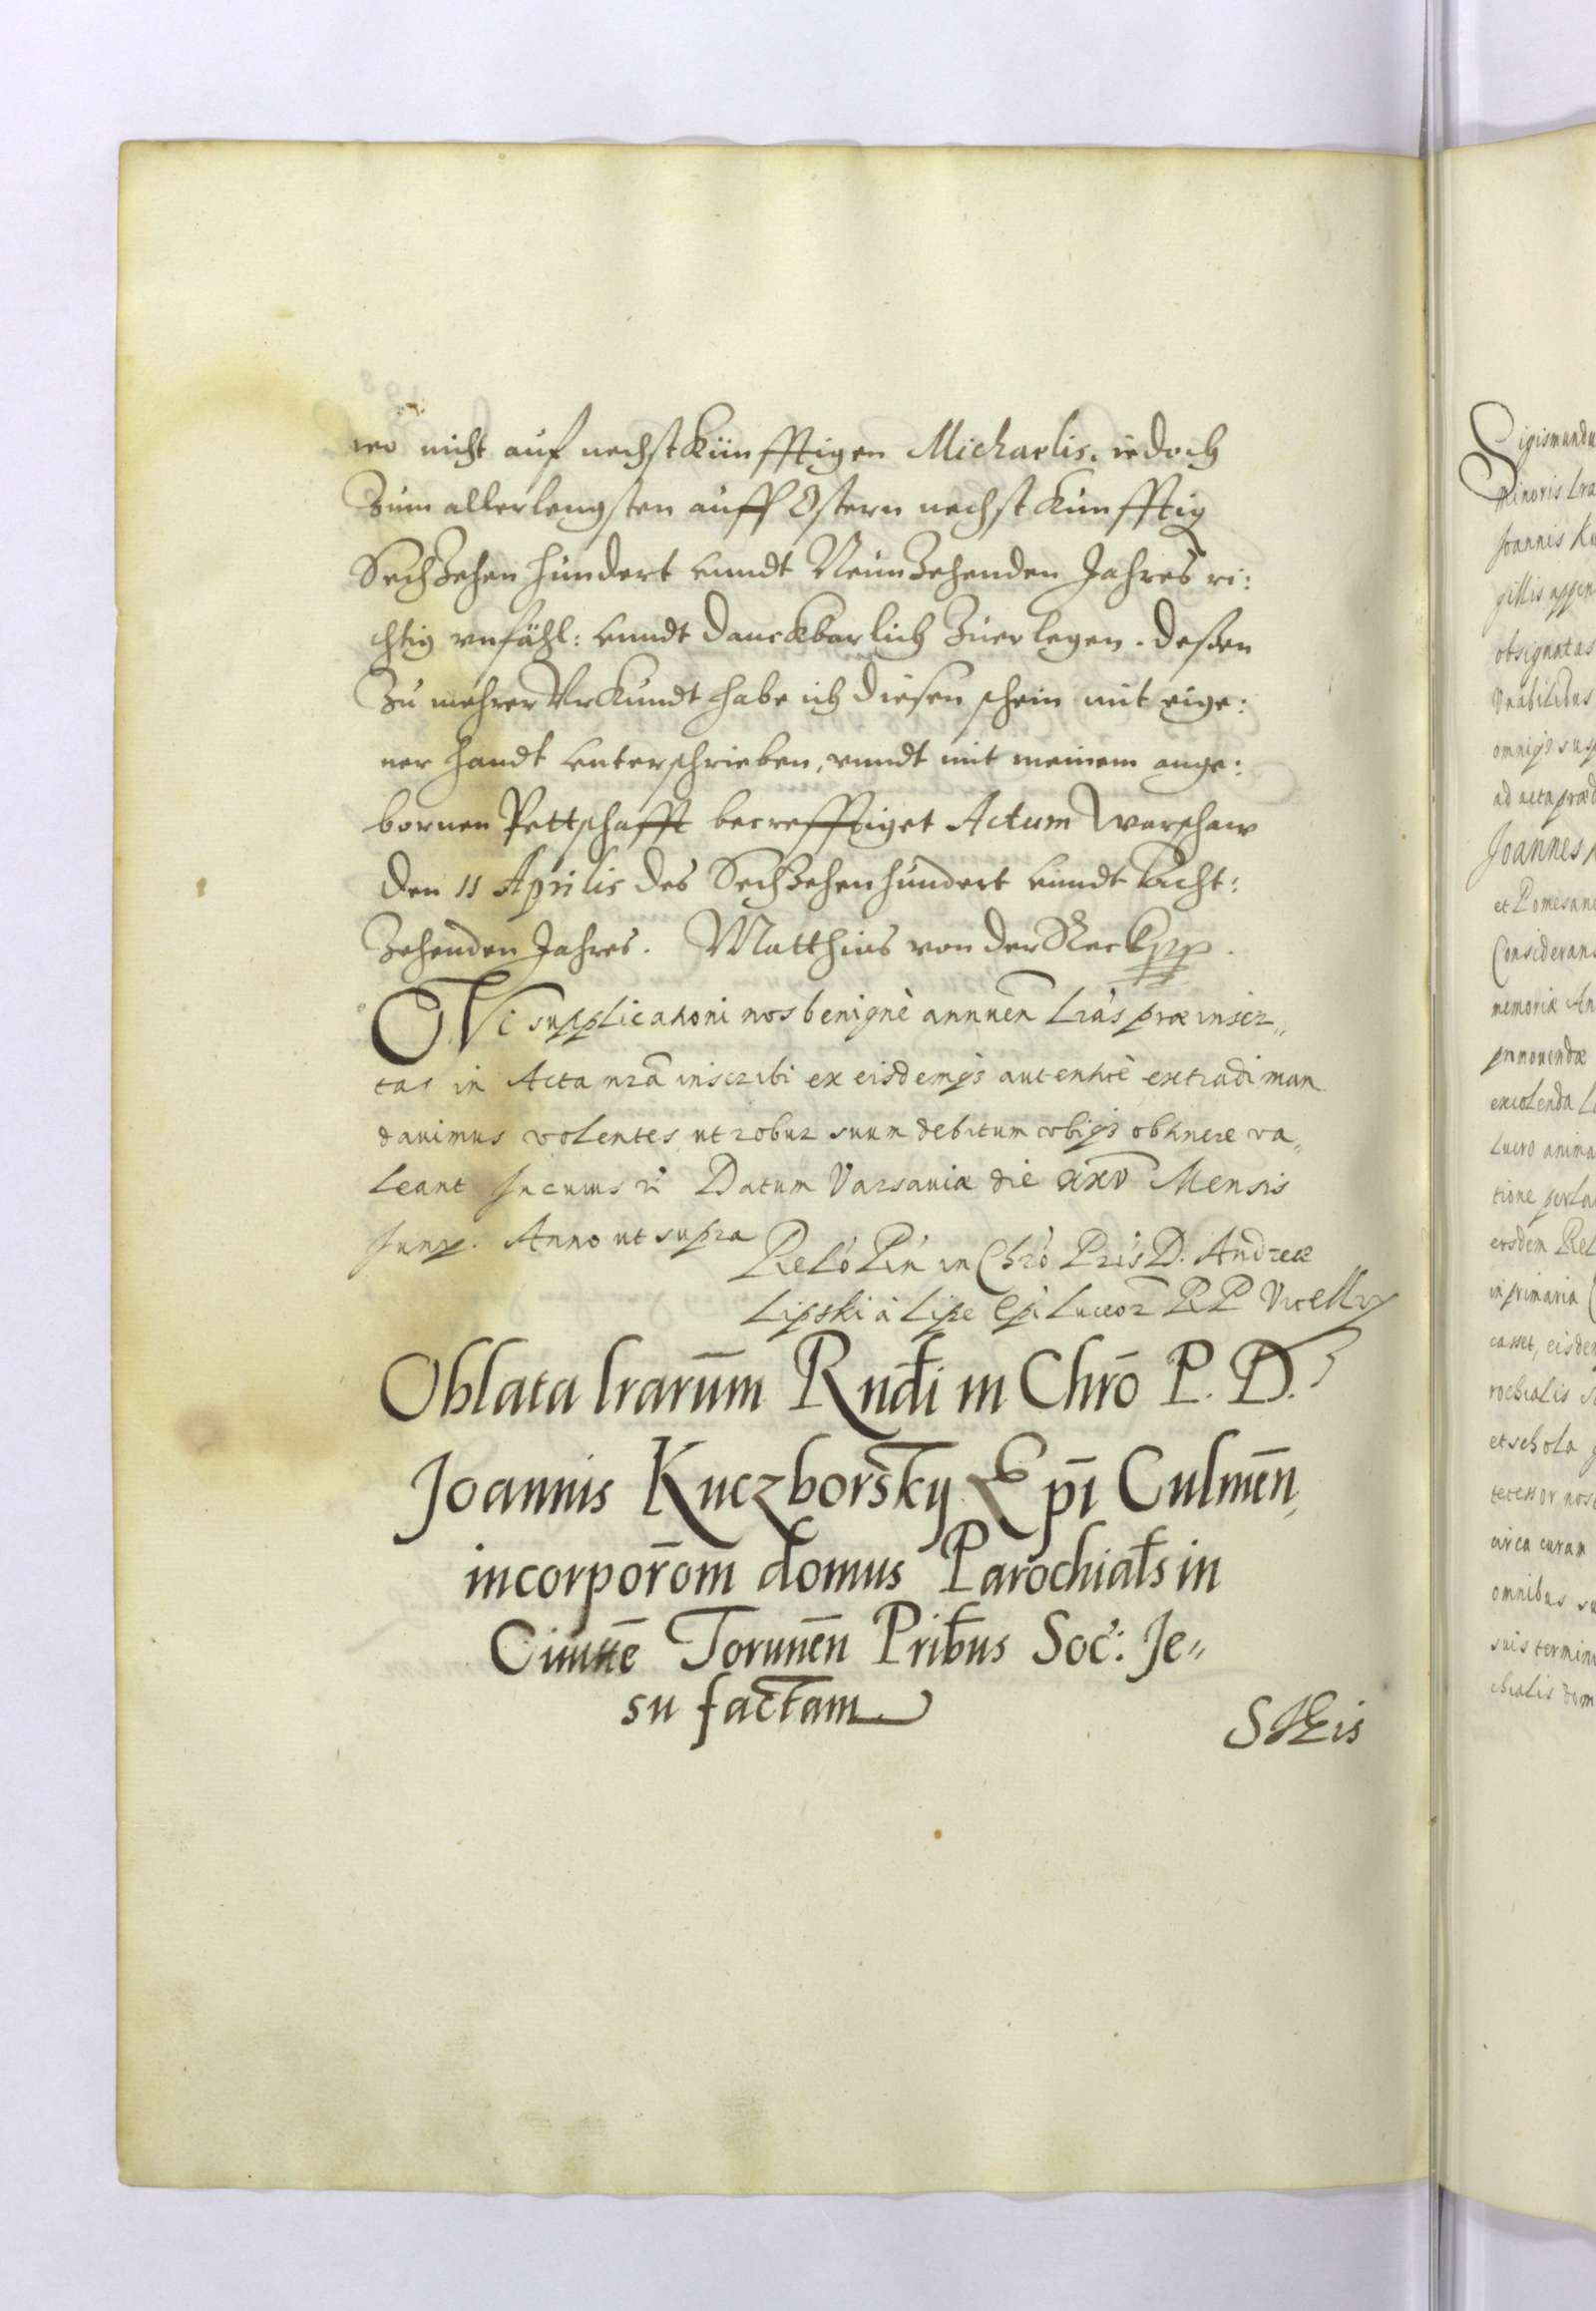 wo nicht auf nechstkünfftigen Michaelis. iedoch
Zum allerlengsten auff Ostern nechstkünfftig
SechZehen hundert vundt NeunZehenden Jahres ri:
chtig unfähl: vundt danckbarlich Zuerlegen. deßen
Zu mehrer Vrkundt habe ich diesen schein mit eige:
ner handt unterschrieben, vundt mit meinem ange:
bornen Pettschafft becrefftiget Actum Warschaw
den 11 Aprilis des SechZehenhundert vundt Acht:
Zehenden Jahres. Matthias von der Reck
supplicationi nos benignè annuen Lras præinser„
tas in Acta nra inscribi ex eisdemqs autenticè extradi man
dauimus volentes ut robur suum debitum vbiqs obtinere va„
leant In cuius rei Datum Varsauiæ die xxv Mensis
Juny. Anno ut supra
Relo Rn in Chro Pris D. Andreæ
Lipski à Lipe Epi Luceor RP Vicelly
Oblata lrarum Rndi in Chro P. D.
Joannis Kuczborsky Epi Culmen,
incorporom domus Parochialis in
Ciuitte Torunen Pribus Soc: Je„
su factam
Sigismundu
minoris Lra
Joannis Ku
gillis appen
obsignatas
omniqs susp
ad acta præd
Joannes
et Pomesani
Considerans
memoriæ An
promouendæ
excolenda
Lucro anima
tione perlo
eisdem Rel
in primaria
casset, eisdem
rochialis
et schola
tecessor nos
circa curam
omnibus su
suis termini
chialis dom